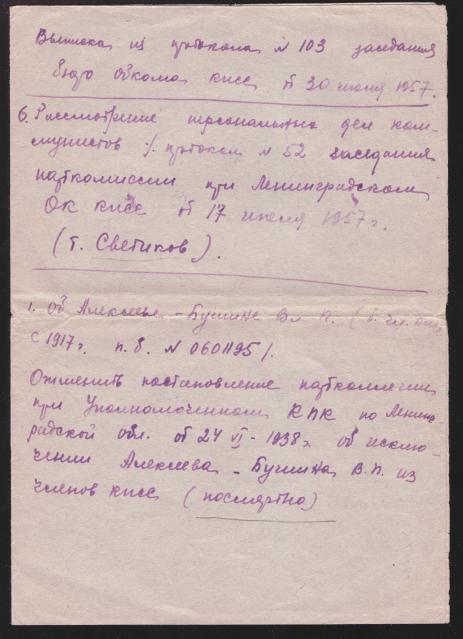 Выписка из протокола N 103 заседания
бюро обкома КПСС от 30 июля 1957.
6. Рассмотрение персональных дел ком-
мунистов /. протокол N 52 заседания
парткомиссии при Ленинградском
ОК КПСС от 17 июля 1957 г.
(т. Светиков).
1. Об Алексееве-Бушине Вл. П. (б. чл.
с 1917 г. п. б. N 0601195/.
Отменить постановление партколлегии
при Уполномоченном КПК по Ленинг-
радской обл. от 24 VI - 1938 г. об исклю-
чении Алексеева-Бушина В. П. из
членов КПСС (посмертно)